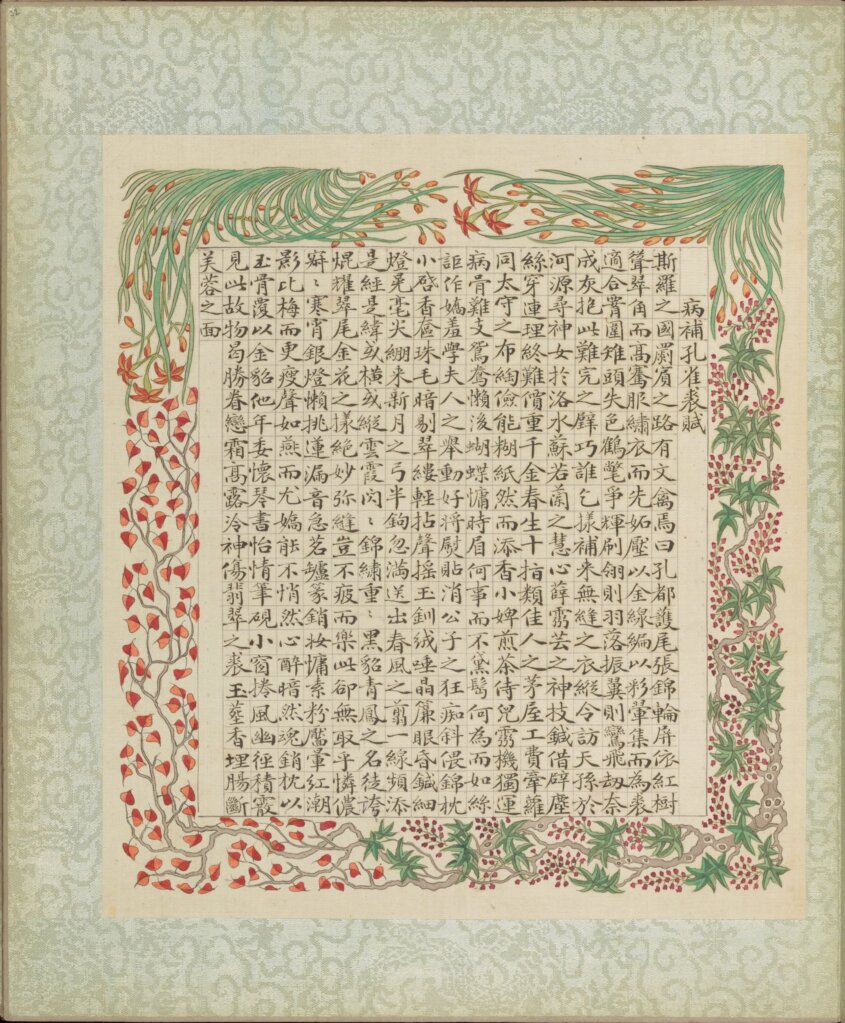 病補孔雀裘賦
斯羅之國罽賓之路有文禽焉曰孔都護尾張錦輪屏依紅樹
聳翠角而高騫服繡衣而先妬壓以金線編以彩翬集而為裘
適合霄圍雉頭失色鶴氅爭輝刷翎則羽落振翼則鸞飛劫奈
成灰抱此難完之礕巧誰乞樣補來無縫之衣縱令訪天孫於
河源尋神女於洛水蘇若蘭之慧心薛靈芸之神技鍼借辟塵
絲穿連理終難償重千金春生十指類佳人之茅屋工費牽蘿
同太守之布綯儉能糊紙然而添香小婢煎茶侍兒靈機獨運
病骨難支鴛鴦懶後蝴蝶慵時眉何事而不黛鬢何為而如絲
詎作嬌羞學夫人之舉動好將熨貼消公子之狂痴斜偎錦枕
小啓香奩珠毛暗剔翠縷輕拈聲搖玉釧絨唾晶簾眼昏鍼細
燈晃毫尖繃來新月之弓半鉤忽滿送出春風之翦一線頻添
是經是緯或橫或縱雲霞閃〻錦繡重〻黑貂青鳳之名徒誇
焜耀翠尾金花之樣絕妙彌縫豈不疲而樂此卻無取乎憐儂
辭〻寒宵銀燈懶挑蓮漏音急茗罏篆銷妝慵素粉靨暈紅潮
影比梅而更瘦聲如燕而尤嬌能不悄然心醉暗然魂銷枕以
玉骨覆以金貂他年委懷琴書怡情筆硯小窗捲風幽徑積霞
見此故物曷勝眷戀霜高露冷神傷翡翠之裘玉蕋香埋腸斷
芙蓉之面